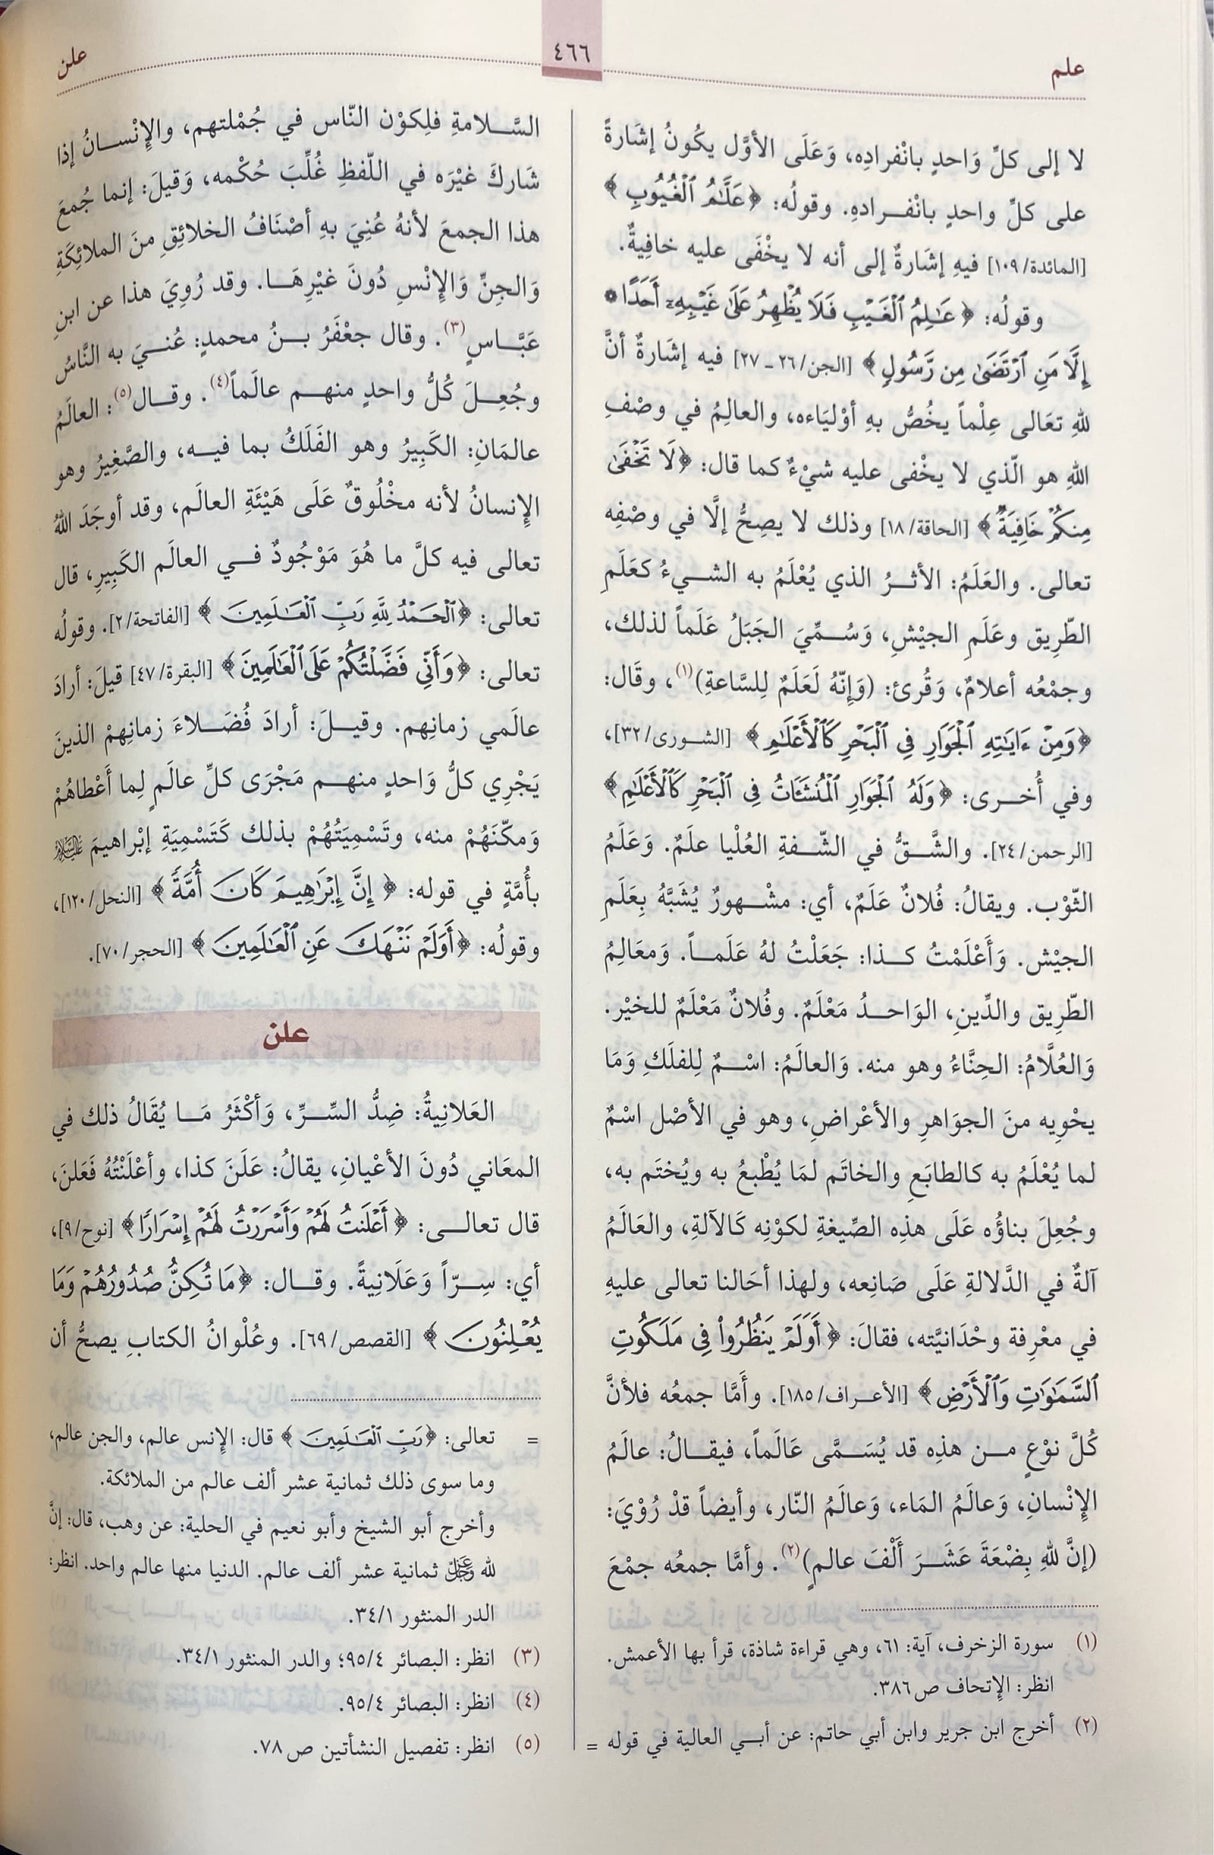 علم
٤٦٦
علن
لا إلى كلِّ وَاحدٍ بانْفرادِه، وَعَلَى الأوَّل يكُونُ إشَارةً
على كلِّ واحدٍ بانْفـرادهِ. وقولُه: ﴿عَلَّٰمُ ٱلْغُيُوبِ﴾
[المائدة/١٠٩] فيهِ إشَارةٌ إلى أنه لا يخْفَى عليه خافِيةٌ.
وقولُه: ﴿عَٰلِمُ ٱلْغَيْبِ فَلَا يُظْهِرُ عَلَىٰ غَيْبِهِۦٓ أَحَدًا *
إِلَّا مَنِ ٱرْتَضَىٰ مِن رَّسُولٍ﴾ [الجن/٢٦ ـ ٢٧] فيه إشَارةٌ أنَّ
للهِ تعَالى عِلْماً يخُصُّ بهِ أوْليَاءه، والعالِمُ في وصْفِ
اللهِ هو الّذي لا يخْفى عليه شيْءٌ كما قال: ﴿لَا تَخْفَىٰ
مِنكُمْ خَافِيَةٌ﴾ [الحاقة/١٨] وذلك لا يصِحُّ إلَّا في وصْفِه
تعالى. والعَلَمُ: الأثـرُ الذي يُعْلَمُ به الشـيءُ كعَلَمِ
الطّرِيق وعلَمِ الجيْشِ، وَسُـمِّيَ الجَبَلُ عَلَماً لذلك،
وجمْعُه أعلامٌ، وَقُرئ: (وَإنّهُ لَعَلَمٌ لِلسَّاعةِ)(١)، وقَال:
﴿وَمِنْ ءَايَٰتِهِ ٱلْجَوَارِ فِى ٱلْبَحْرِ كَٱلْأَعْلَٰمِ﴾ [الشـورى/٣٢]،
وفي أُخـرى: ﴿وَلَهُ ٱلْجَوَارِ ٱلْمُنشَـَٔاتُ فِى ٱلْبَحْرِ كَٱلْأَعْلَٰمِ﴾
[الرحمن/٢٤]. والشَّـقُّ في الشّـفةِ العُلْيا علَمٌ. وَعلَمُ
الثّوْب. ويقالُ: فُلانٌ عَلَمٌ، أي: مشْـهورٌ يُشَبَّهُ بِعَلَمِ
الجيْش. وَأَعْلَمْتُ كـذا: جَعَلْتُ لهُ عَلَمـاً. وَمعَالِمُ
الطّرِيق والدِّينِ، الوَاحـدُ مَعْلَمٌ. وفُلانٌ مَعْلَمٌ للخيْر.
وَالعُلَّامُ: الحِنَّاءُ وهو منه. وَالعالَمُ: اسْـمٌ لِلفلَكِ وَمَا
يحْوِيه منَ الجوَاهرِ والأعْراضِ، وهو في الأصْل اسْمٌ
لما يُعْلَمُ به كالطابَعِ والخاتَم لمَا يُطْبعُ به ويُختَم به،
وجُعِلَ بناؤُه عَلَى هذِه الصِّيغةِ لكوْنِه كَالآلةِ، والعَالَمُ
آلةٌ في الدَّلالةِ عَلَى صَانِعه، ولهذا أحَالنا تعالى عليهِ
في معْرِفة وحْدَانيَّته، فقالَ: ﴿أَوَلَمْ يَنظُرُوا۟ فِى مَلَكُوتِ
ٱلسَّمَٰوَٰتِ وَٱلْأَرْضِ﴾ [الأعـراف/١٨٥]. وأمَّا جمعُه فلأنَّ
كُلَّ نوْعٍ مـن هذِه قد يُسَـمَّى عَالَماً، فيقـالُ: عالَمُ
الإنْسانِ، وَعالَمُ المَاء، وَعالَمُ النّار، وأيضاً قدْ رُوْيَ:
(إنَّ للهِ بِضْعَةَ عَشَـرَ أَلْفَ عالمٍ)(٢). وأمَّا جمعُه جمْعَ
(١) سورة الزخرف، آية: ٦١، وهي قراءة شاذة، قرأ بها الأعمش.
انظر: الإتحاف ص٣٨٦.
(٢) أخرج ابن جرير وابن أبي حاتم: عن أبـي العالية في قوله =
السَّـلامةِ فلِكوْن النّاس في جُمْلتهم، والإنْسـانُ إذا
شَاركَ غيْرَه في اللّفظِ غُلِّبَ حُكْمه، وَقيلَ: إنما جُمعَ
هذا الجمعَ لأنهُ عُنِيَ بهِ أصْنَافُ الخلائِقِ منَ الملائِكَةِ
وَالجِنِّ وَالإنْسِ دُونَ غيْرِهَـا. وقد رُوِيَ هذا عن ابنِ
عَبَّـاسٍ(٣). وقال جعْفَرُ بـنُ محمدٍ: عُنـيَ به النَّاسُ
وجُعِـلَ كُلُّ واحدٍ منهـم عالَماً(٤). وقـال(٥): العالَمُ
عالمَانِ: الكَبِيرُ وهو الفَلَكُ بما فيـه، والصَّغِيرُ وهو
الإنسانُ لأنه مخْلُوقٌ عَلَى هَيْئَةِ العالَم، وقد أوجَدَ اللهُ
تعالى فيه كلَّ ما هُوَ مَوْجُودٌ فـي العالَم الكَبِيرِ، قال
تعالى: ﴿ٱلْحَمْدُ لِلَّهِ رَبِّ ٱلْعَٰلَمِينَ﴾ [الفاتحة/٢]. وقولُه
تعالى: ﴿وَأَنِّى فَضَّلْتُكُمْ عَلَى ٱلْعَٰلَمِينَ﴾ [البقرة/٤٧] قيلَ: أرادَ
عالَمي زمانِهم. وقيـلَ: أرادَ فُضَـلاءَ زمانِهمْ الذينَ
يَجْرِي كلُّ وَاحدٍ منهـم مَجْرَى كلِّ عالَمٍ لِما أعْطاهُمْ
وَمكّنَهُمْ منه، وتَسْمِيَتُهُمْ بذلك كَتَسْمِيَةِ إبْراهيمَ عليه السلام
بأُمَّةٍ في قوله: ﴿إِنَّ إِبْرَٰهِيمَ كَانَ أُمَّةً﴾ [النحل/١٢٠]،
وقولُه: ﴿أَوَلَمْ نَنْهَكَ عَنِ ٱلْعَٰلَمِينَ﴾ [الحجر/٧٠].
علن
العَلانِيةُ: ضِدُّ السِّـرِّ، وَأكْثَرُ مَـا يُقَالُ ذلك في
المعَاني دُونَ الأعْيانِ، يقالُ: عَلَنَ كذا، وأعْلَنْتُهُ فَعَلنَ،
قال تعالـى: ﴿أَعْلَنتُ لَهُمْ وَأَسْرَرْتُ لَهُمْ إِسْرَارًا﴾ [نوح/٩]،
أي: سِـرّاً وَعَلَانِيةً. وقـال: ﴿مَا تُكِنُّ صُدُورُهُمْ وَمَا
يُعْلِنُونَ﴾ [القصص/٦٩]. وعُلْوانُ الكتابِ يصحُّ أن
= تعالى: ﴿رَبِّ ٱلْعَٰلَمِينَ﴾ قال: الإنس عالم، والجن عالم،
وما سوى ذلك ثمانية عشر ألف عالم من الملائكة.
وأخرج أبو الشيخ وأبو نعيم في الحلية: عن وهب، قال: إنَّ
لله عز وجل ثمانية عشر ألف عالم. الدنيا منها عالم واحد. انظر:
الدر المنثور ٣٤/١.
(٣) انظر: البصائر ٩٥/٤؛ والدر المنثور ٣٤/١.
(٤) انظر: البصائر ٩٥/٤.
(٥) انظر: تفصيل النشأتين ص٧٨.